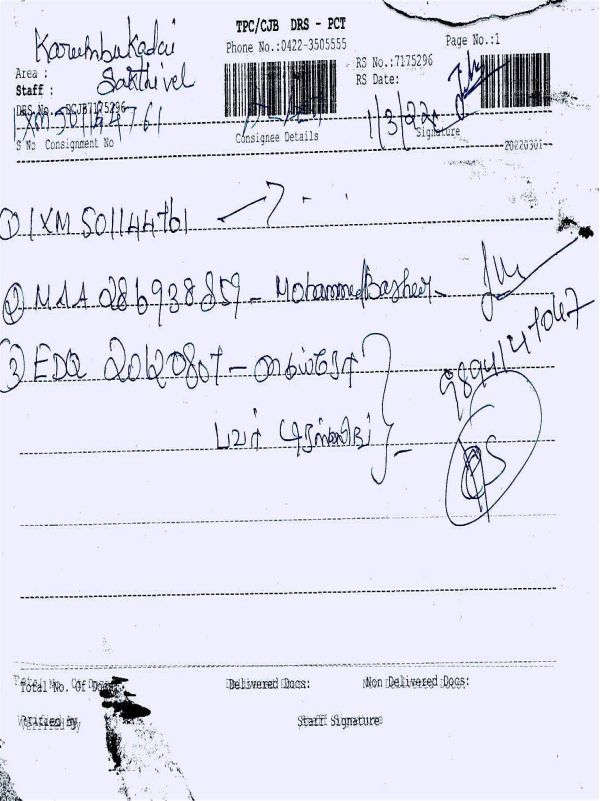 TPC/CJB DRS - PCT
Karumbukadai
Phone No.:0422-3505555
Page No.:1
Area :
Sakthivel
RS No.:7175296
Staff :
RS Date:
DRS No. DCJB7175296
IXM 501144761
1/3/22
S No Consignment No
Consignee Details
Signature
20220301
① IXM 501144761
② MAA 286938859 - Mohammed Basheer -
③ EDQ 20120807 - மைக்ரோ
பவர்
Total No. Of Docs:
Delivered Docs:
Non Delivered Docs:
Verified By
Staff Signature